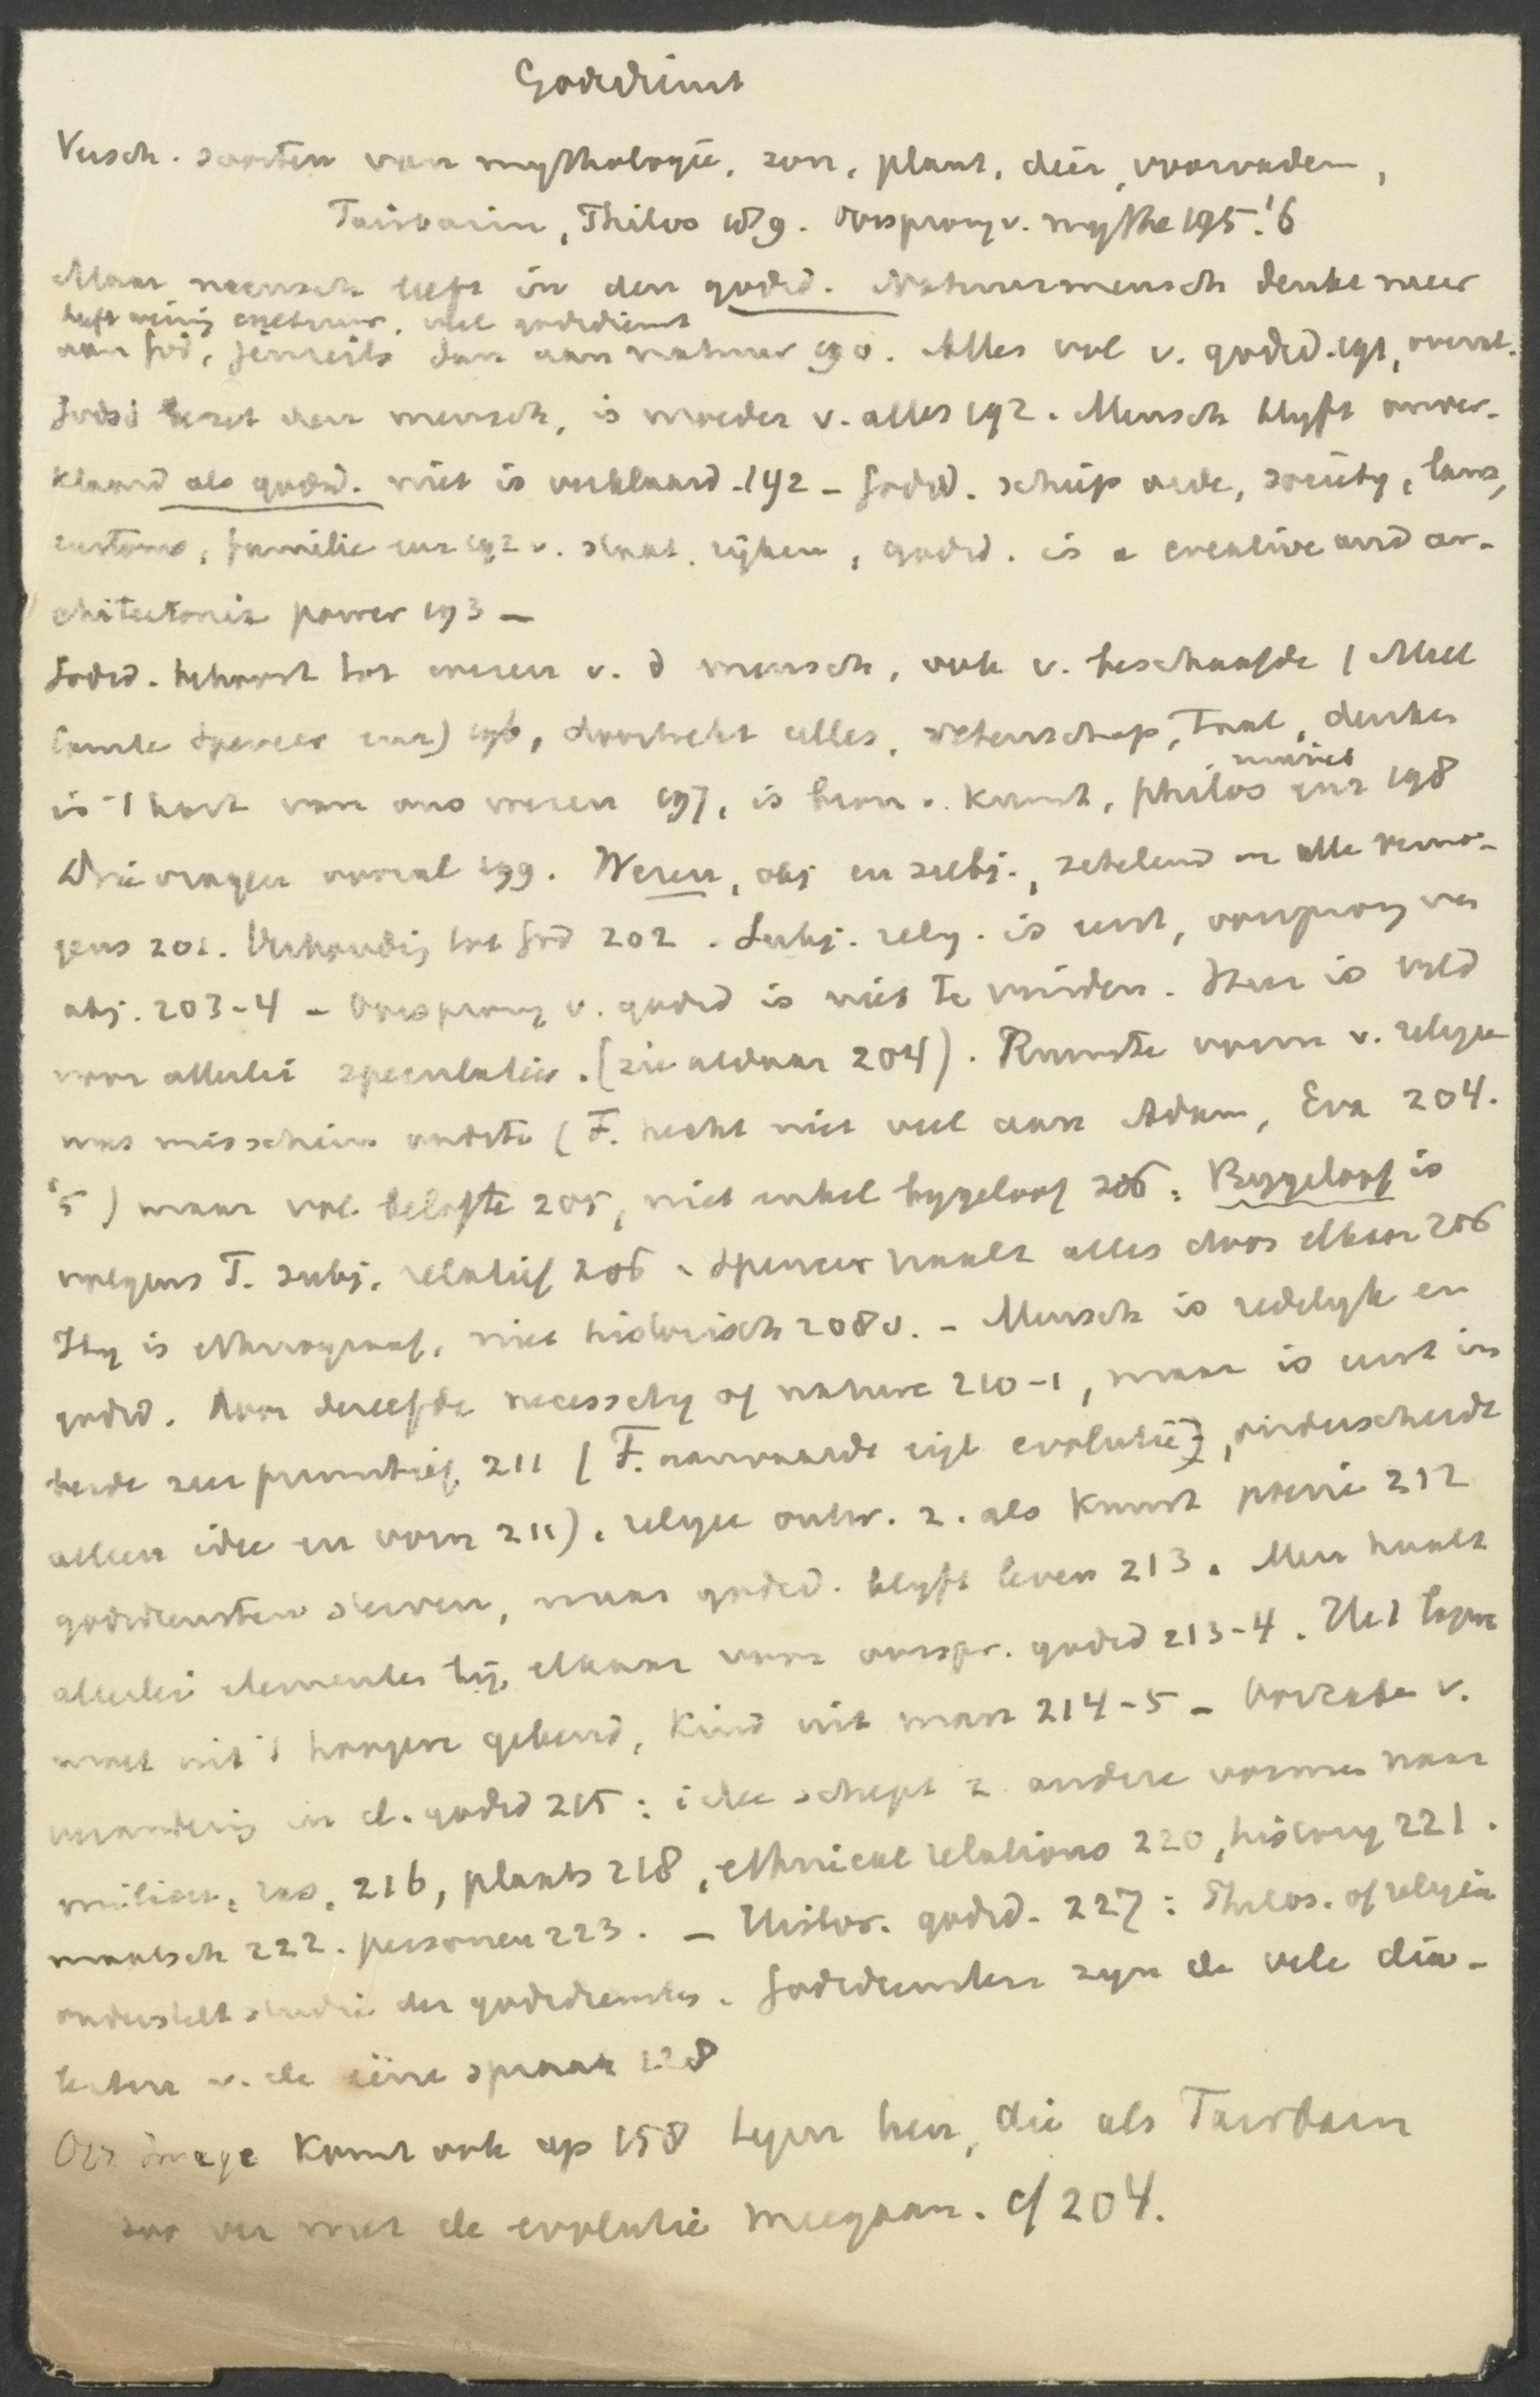 Godsdienst
Versch. soorten van mythologie, zon, plant, dier, voorvaderen,
Fairbairn, Philos 189. oorsprong v. mythe 195.'6
Maar mensch leeft in den godsd. Natuurmensch denkt meer
heeft weinig cultuur, veel godsdienst
aan God, jenseits dan aan natuur 190. Alles vol v. godsd. 191, overal.
Godsd bezit den mensch, is moeder v. alles 192. Mensch blyft onver-
klaard als godsd. niet is verklaard. 192 - Godsd. schiep orde, society, laws,
customs, familie enz 192 v. staat, ryken, godsd. is a creative and ar-
chitectonic power 193 -
Godsd. behoort tot wezen v. d mensch, ook v. beschaafde (Mill
Comte Spencer enz) 196, doortrekt alles, wetenschap, taal, denken
is 't hart van ons wezen 197, is bron v. kunst, philos muziek enz 198
Drie vragen vooral 199. Wezen, obj en subj., zetelend in alle vermo-
gens 201. Verhouding tot God 202. Subj. relig. is eerst, oorsprong van
obj. 203-4 - Oorsprong v. godsd is niet te vinden. Hier is veld
voor allerlei speculaties. (zie aldaar 204). Ruwste vorm v. religie
was misschien oudste (F. hecht niet veel aan Adam, Eva 204.
'5) maar vol belofte 205, niet enkel bygeloof 206. Bygeloof is
volgens F. subj. relatief 206. Spencer haalt alles door elkaar 206
Hy is ethnograaf, niet historisch 208 v. - Mensch is redelyk en
godsd. door dezelfde necessity of nature 210-1, maar is eerst in
beide zeer primitief 211 (F. aanvaardt vyl evolutie), onderscheidt
alleen idee en vorm 211). religie ontw. z. als kunst poezie 212
godsdiensten sterven, maar godsd. blyft leven 213. Men haalt
allerlei elementen by elkaar voor oorspr. godsd 213-4. Het lagere
moet uit 't hoogere gekend, kind uit man 214-5 - Oorzaken v.
verandering in d. godsd 215: idee schept z andere vormen naar
milieu, ras, 216, plaats 218, ethnical relations 220, history 221.
maatsch 222. personen 223. - Histor. godsd. 227: Philos. of religion
onderstelt studie der godsdiensten. Godsdiensten zyn de vele dia-
lecten v. de ééne spraak 228
Orr Image komt ook op 158 tegen hen, die als Fairbairn
zoo ver met de evolutie meegaan. cf 204.